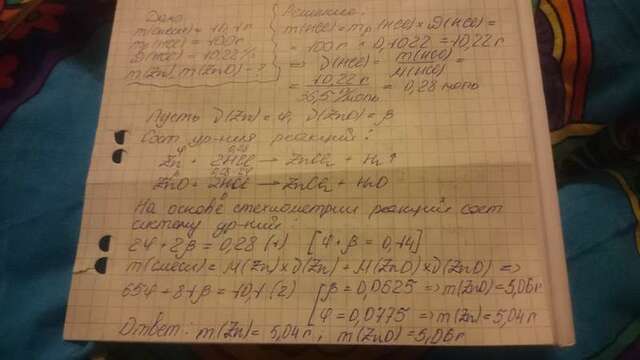 Дано:
m(смеси) = 10,1г
mр(HCl) = 100г
ω(HCl) = 10,22%
m(Zn), m(ZnO) - ?
Решение:
m(HCl) = mр(HCl) × ω(HCl) =
= 100г × 0,1022 = 10,22г
⇒ ν(HCl) = m(HCl)/M(HCl) =
= 10,22г / 36,5 г/моль = 0,28 моль
Пусть ν(Zn) = φ, ν(ZnO) = β
Сост. ур-ния реакций:
Zn + 2HCl → ZnCl2 + H2↑
ZnO + 2HCl → ZnCl2 + H2O
На основе стехиометрии реакций сост
систему ур-ний:
2φ + 2β = 0,28 (1) [φ + β = 0,14]
m(смеси) = M(Zn) × ν(Zn) + M(ZnO) × ν(ZnO) ⇒
65φ + 81β = 10,1 (2) [β = 0,0625 ⇒ m(ZnO) = 5,06г
φ = 0,0775 ⇒ m(Zn) = 5,04г
Ответ: m(Zn) = 5,04г; m(ZnO) = 5,06г